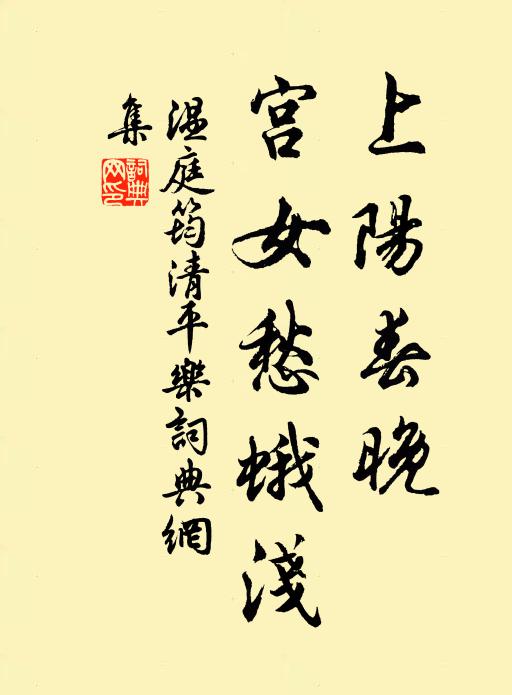 上陽春晚
宮女愁蛾淺
温庭筠清平樂詞典網
集
詞典
网印